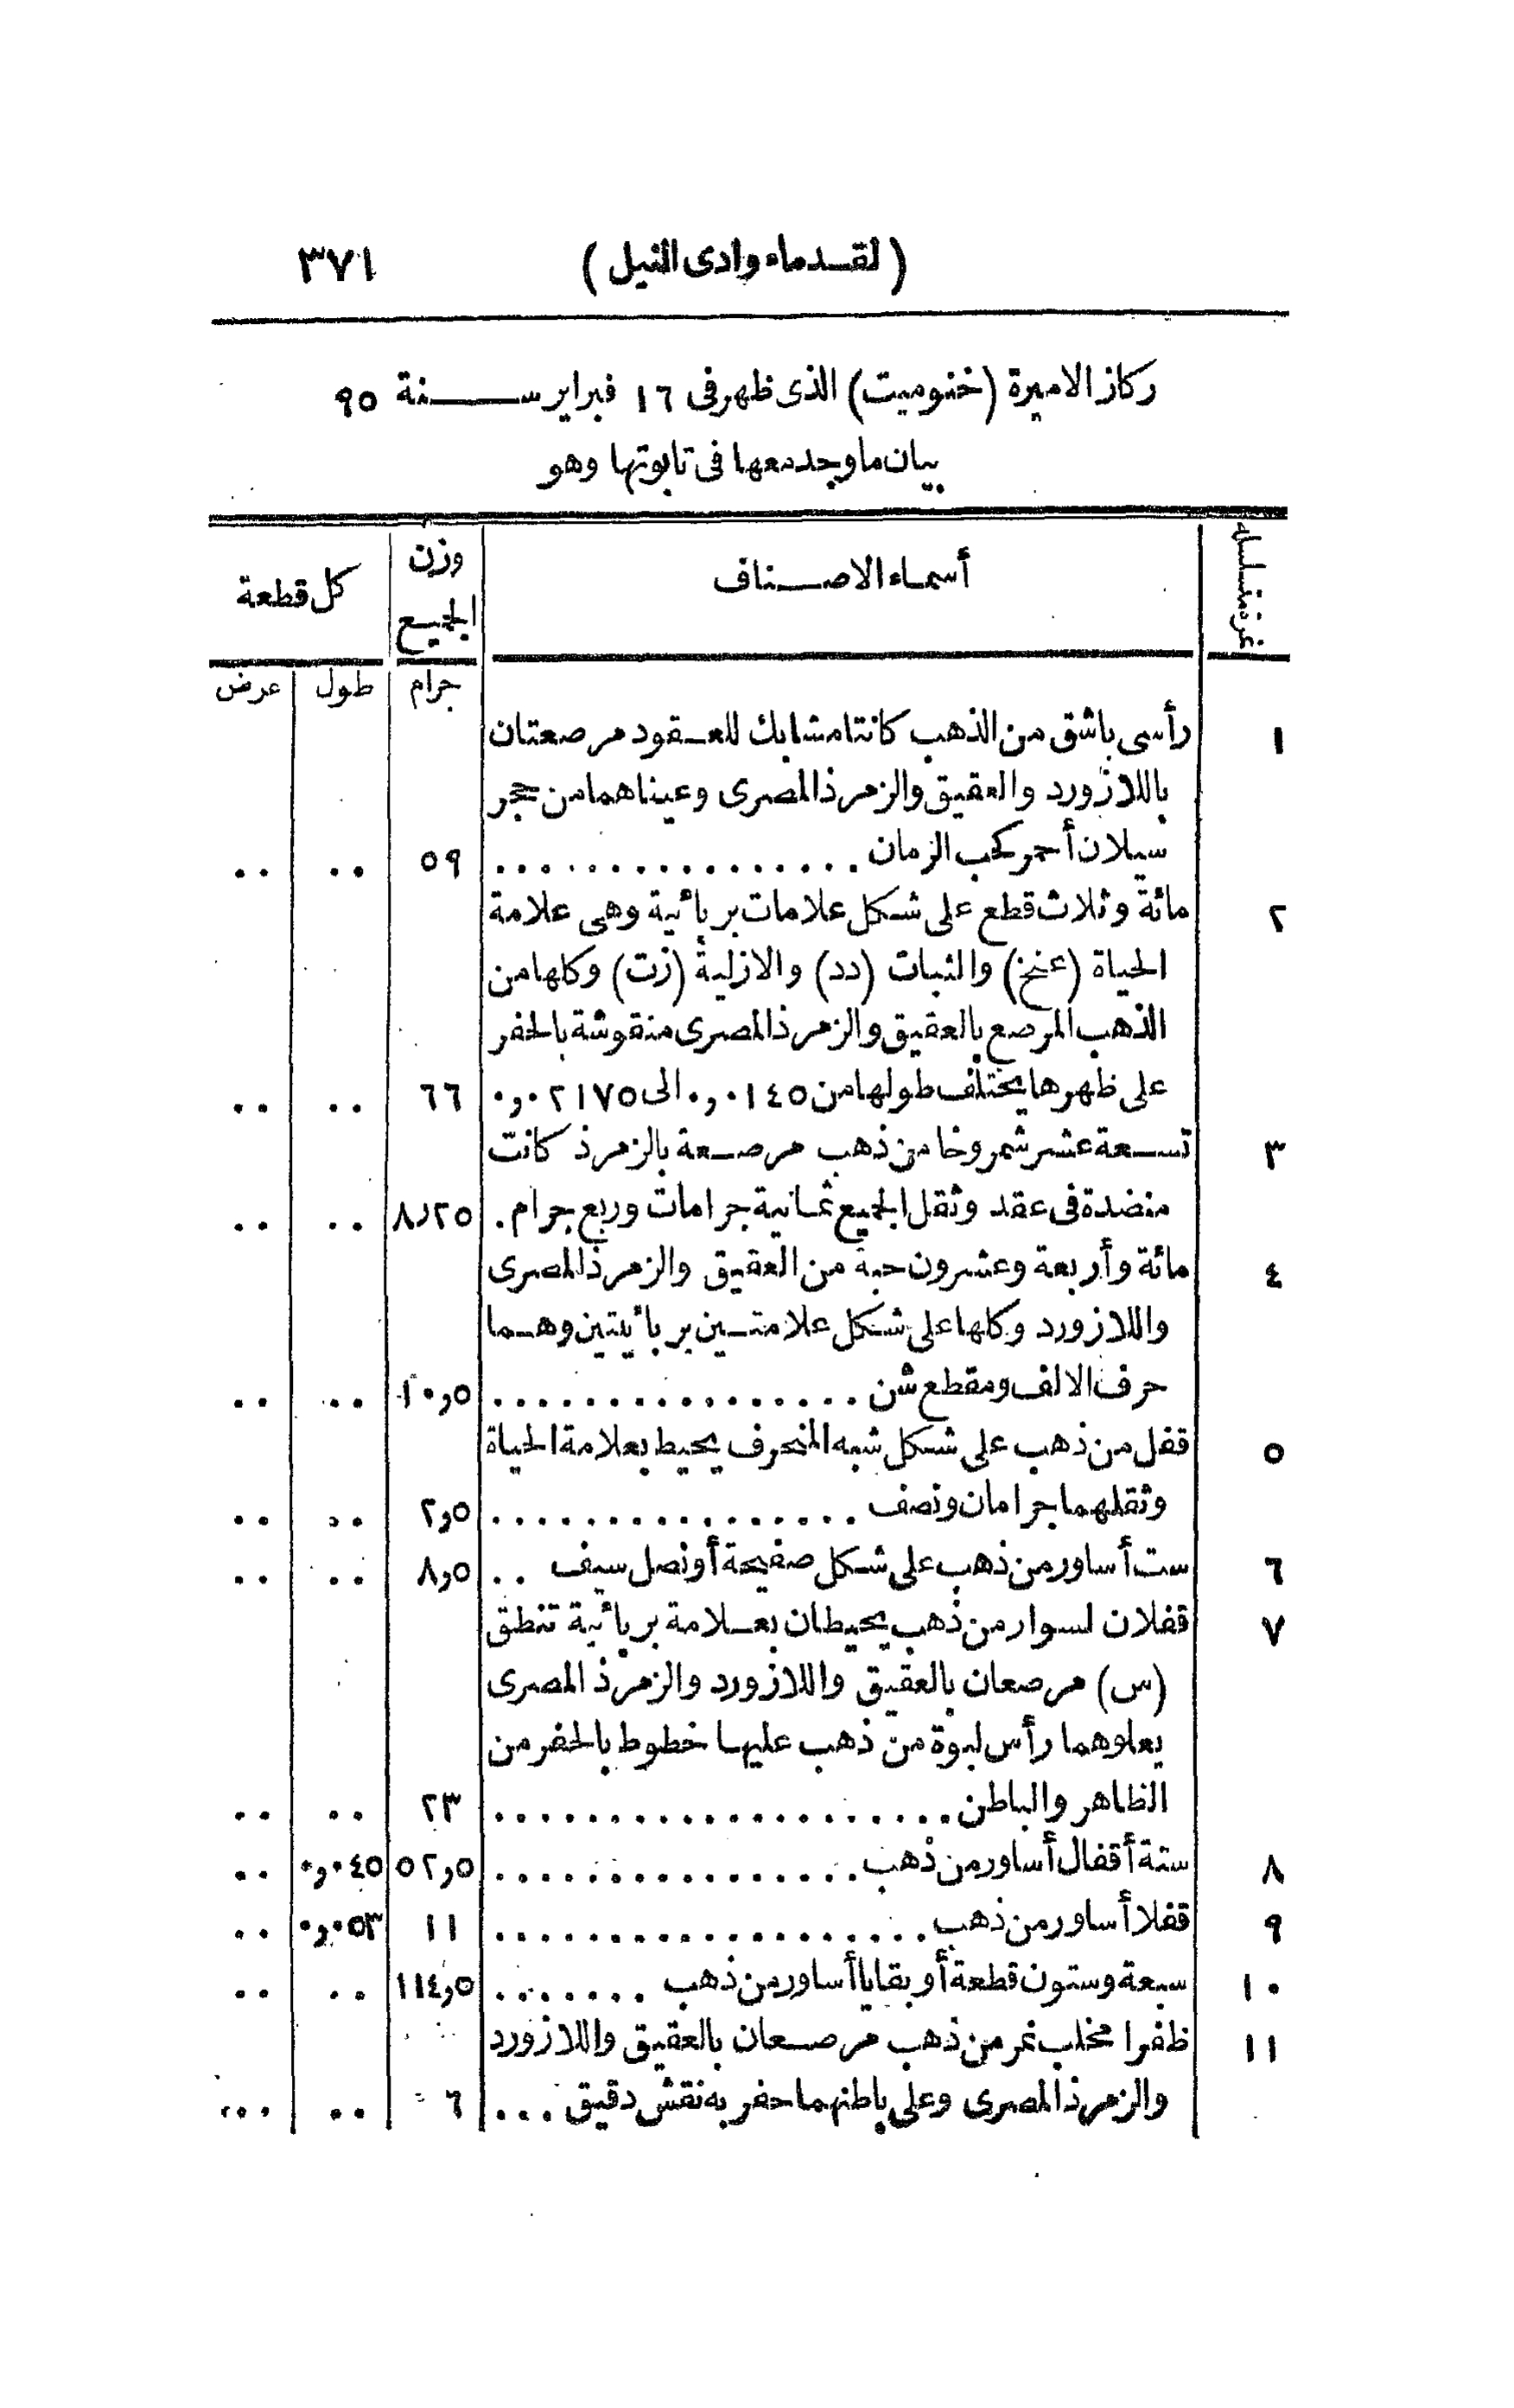 (لقدماء وادى النيل) ٣٧١
ركاز الاميرة (خنوميت) الذى ظهر فى ١٦ فبراير سنة ٩٥
بيان ما وجد معها فى تابوتها وهو
نمرة متسلسلة أسماء الاصناف وزن الجميع كل قطعة
جرام طول عرض
١ رأسى باشق من الذهب كانتا مشابك للعقود مرصعتان
باللازورد والعقيق والزمرذ المصرى وعيناهما من حجر
سيلان أحمر كحب الرمان ................ ٥٩ .. ..
٢ مائة وثلاث قطع على شكل علامات بربائية وهى علامة
الحياة (عنخ) والثبات (دد) والازلية (زت) وكلها من
الذهب المرصع بالعقيق والزمرذ المصرى منقوشة بالحفر
على ظهرها يختلف طولها من ٠٫٠١٤٥ الى ٠٫٠٢١٧٥ ٦٦ .. ..
٣ تسعة عشر شمروخا من ذهب مرصعة بالزمرذ كانت
منضدة فى عقد وثقل الجميع ثمانية جرامات وربع جرام . ٨٫٢٥ .. ..
٤ مائة وأربعة وعشرون حبة من العقيق والزمرذ المصرى
واللازورد وكلها على شكل علامتين بربائيتين وهما
حرف الالف ومقطع شن ................ ١٠٫٥ .. ..
٥ قفل من ذهب على شكل شبه المنحرف يحيط بعلامة الحياة
وثقلهما جرامان ونصف ................ ٢٫٥ .. ..
٦ ست أساور من ذهب على شكل صفيحة أو نصل سيف .. ٨٫٥ .. ..
٧ قفلان لسوار من ذهب يحيطان بعلامة بربائية تنطق
(س) مرصعان بالعقيق واللازورد والزمرذ المصرى
يعلوهما رأس لبوة من ذهب عليها خطوط بالحفر من
الظاهر والباطن .................... ٢٣ .. ..
٨ ستة أقفال أساور من ذهب ................ ٥٢٫٥ ٠٫٠٤٥ ..
٩ قفلا أساور من ذهب ................... ١١ ٠٫٠٥٣ ..
١٠ سبعة وستون قطعة أو بقايا أساور من ذهب ....... ١١٤٫٥ .. ..
١١ ظفرا مخلب نمر من ذهب مرصعان بالعقيق واللازورد
والزمرذ المصرى وعلى باطنهما حفر به نقش دقيق ... ٦ .. ...